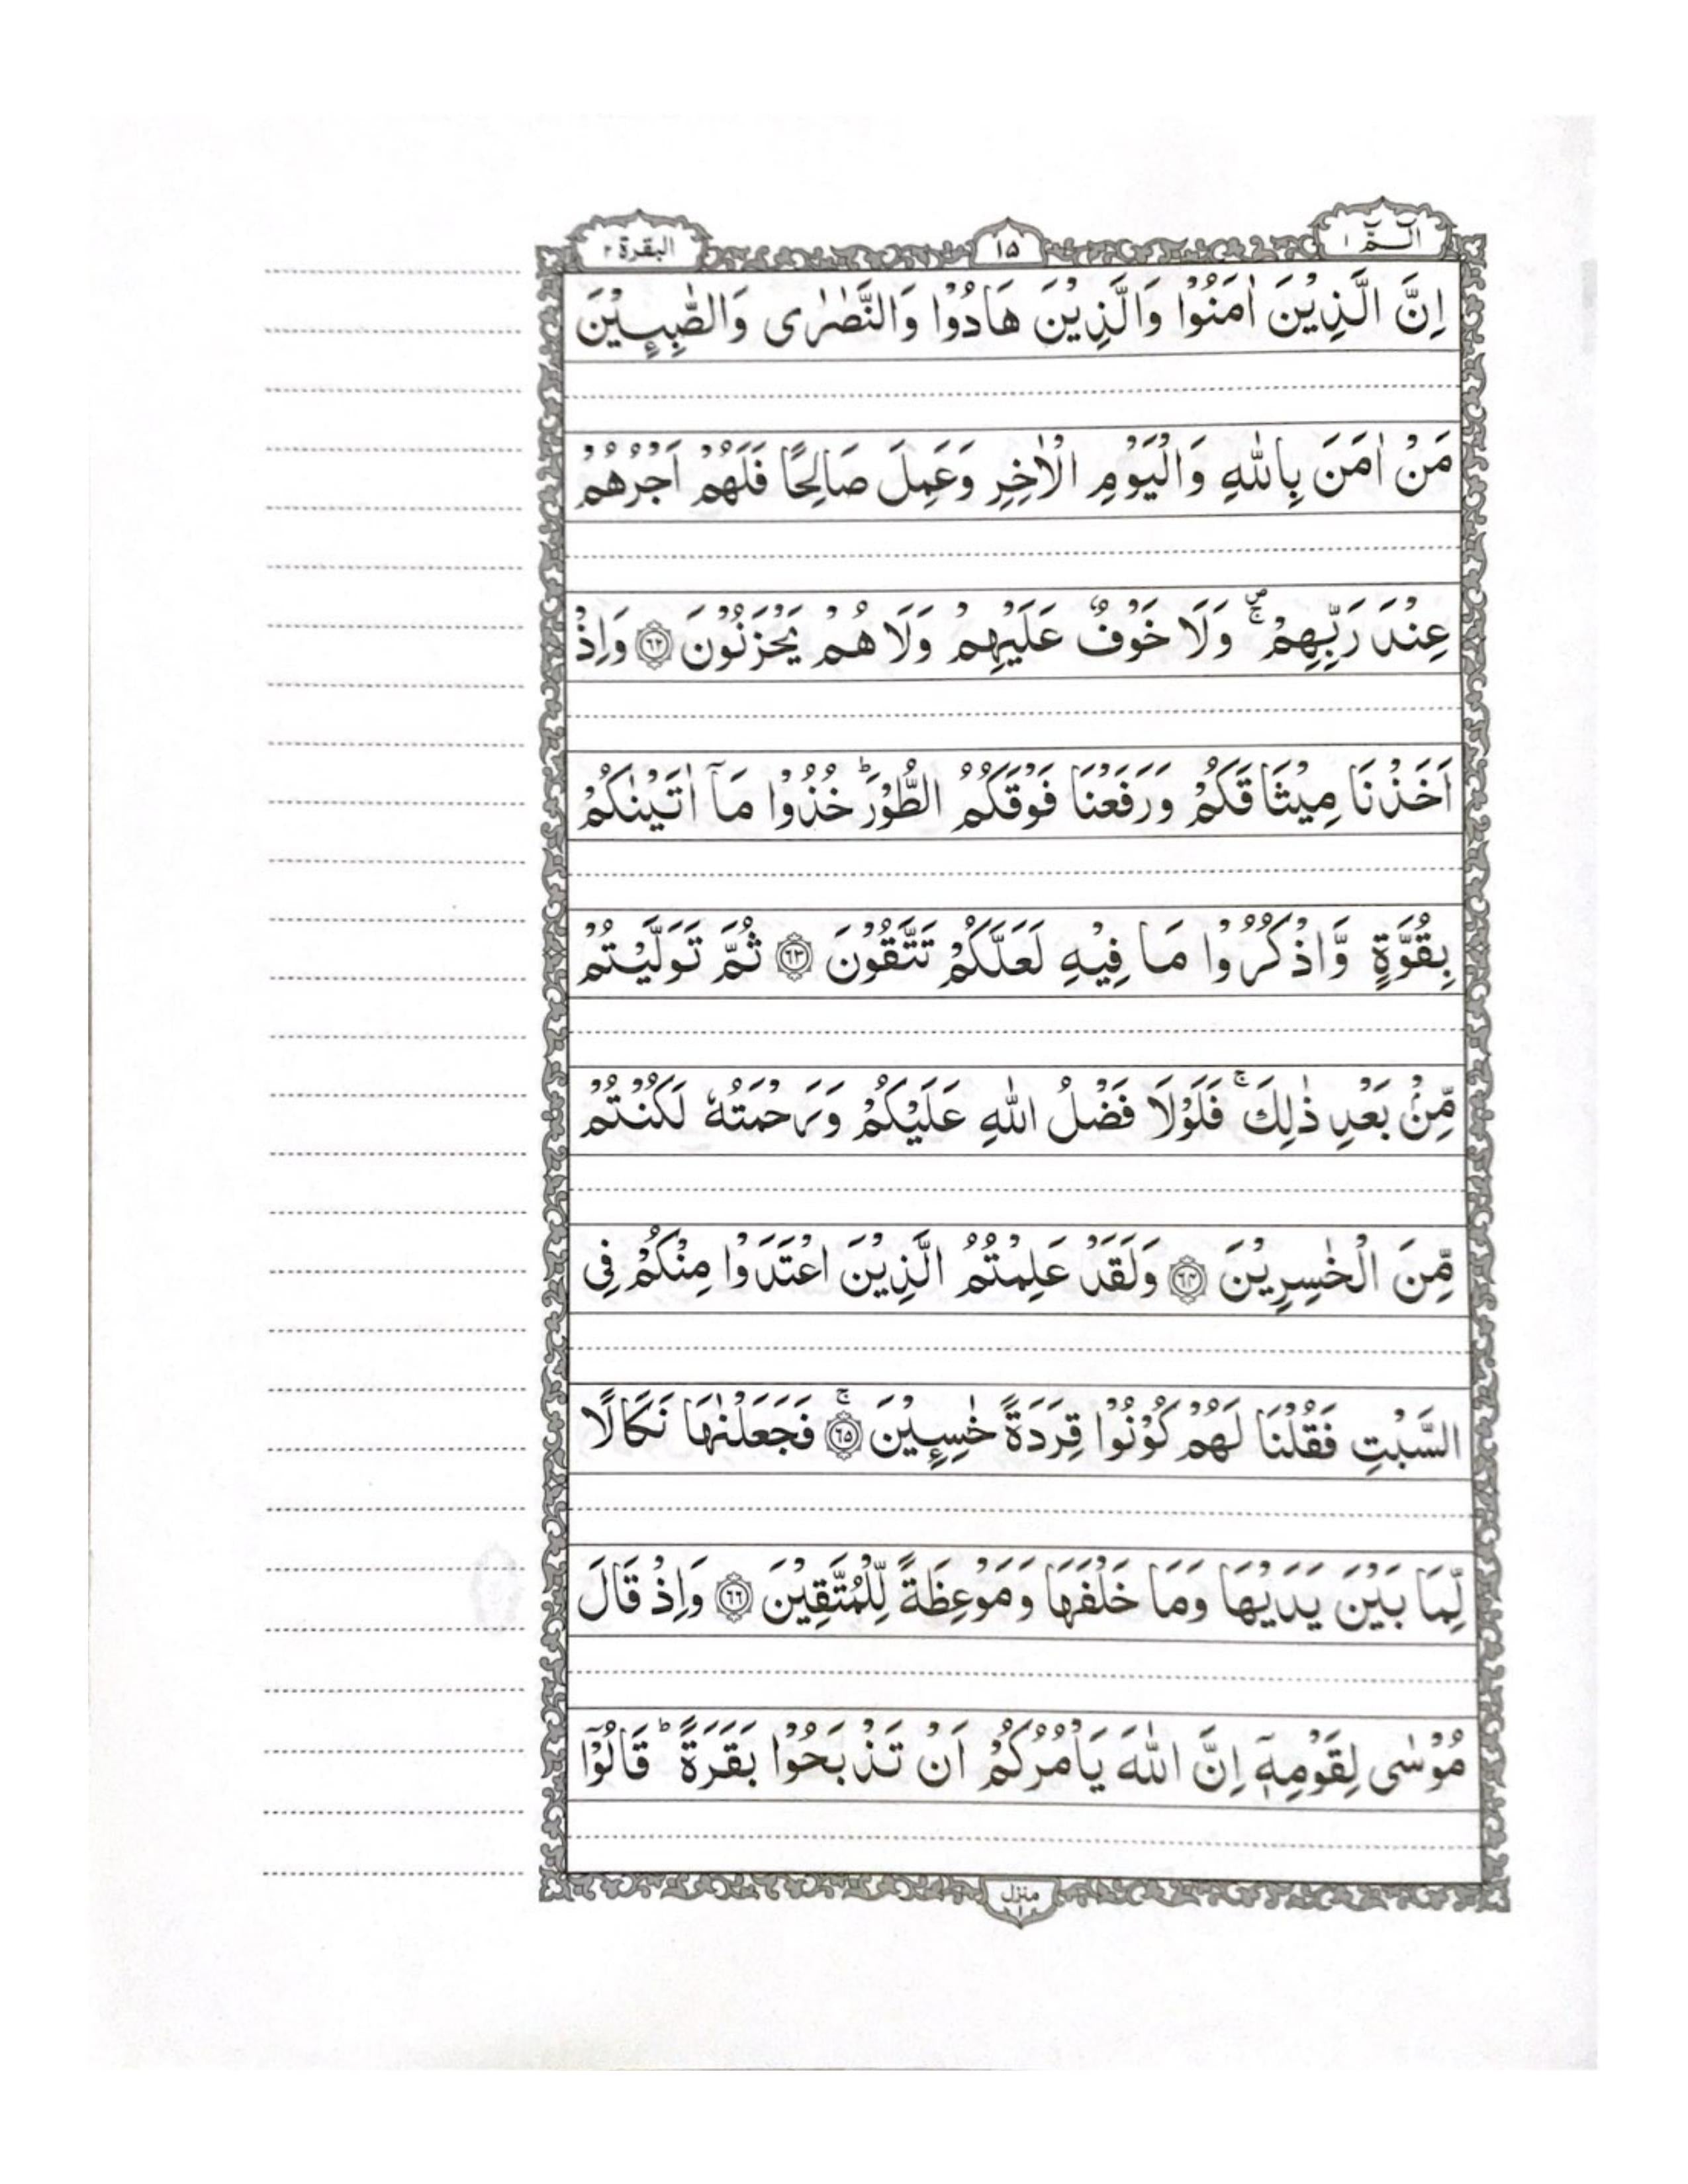 الٓمّٓ ١ ١٥ البقرة ٢
اِنَّ الَّذِيْنَ اٰمَنُوْا وَالَّذِيْنَ هَادُوْا وَالنَّصٰرٰى وَالصّٰبِـِٕيْنَ
مَنْ اٰمَنَ بِاللّٰهِ وَالْيَوْمِ الْاٰخِرِ وَعَمِلَ صَالِحًا فَلَهُمْ اَجْرُهُمْ
عِنْدَ رَبِّهِمْ ۚۖ وَلَا خَوْفٌ عَلَيْهِمْ وَلَا هُمْ يَحْزَنُوْنَ ﴿٦٢﴾ وَاِذْ
اَخَذْنَا مِيْثَاقَكُمْ وَرَفَعْنَا فَوْقَكُمُ الطُّوْرَ ؕ خُذُوْا مَآ اٰتَيْنٰكُمْ
بِقُوَّةٍ وَّاذْكُرُوْا مَا فِيْهِ لَعَلَّكُمْ تَتَّقُوْنَ ﴿٦٣﴾ ثُمَّ تَوَلَّيْتُمْ
مِّنْۢ بَعْدِ ذٰلِكَ ۚ فَلَوْلَا فَضْلُ اللّٰهِ عَلَيْكُمْ وَرَحْمَتُهٗ لَكُنْتُمْ
مِّنَ الْخٰسِرِيْنَ ﴿٦٤﴾ وَلَقَدْ عَلِمْتُمُ الَّذِيْنَ اعْتَدَوْا مِنْكُمْ فِى
السَّبْتِ فَقُلْنَا لَهُمْ كُوْنُوْا قِرَدَةً خٰسِـِٕيْنَ ﴿٦٥﴾ ۚ فَجَعَلْنٰهَا نَكَالًا
لِّمَا بَيْنَ يَدَيْهَا وَمَا خَلْفَهَا وَمَوْعِظَةً لِّلْمُتَّقِيْنَ ﴿٦٦﴾ وَاِذْ قَالَ
مُوْسٰى لِقَوْمِهٖٓ اِنَّ اللّٰهَ يَاْمُرُكُمْ اَنْ تَذْبَحُوْا بَقَرَةً ؕ قَالُوْٓا
منزل ١